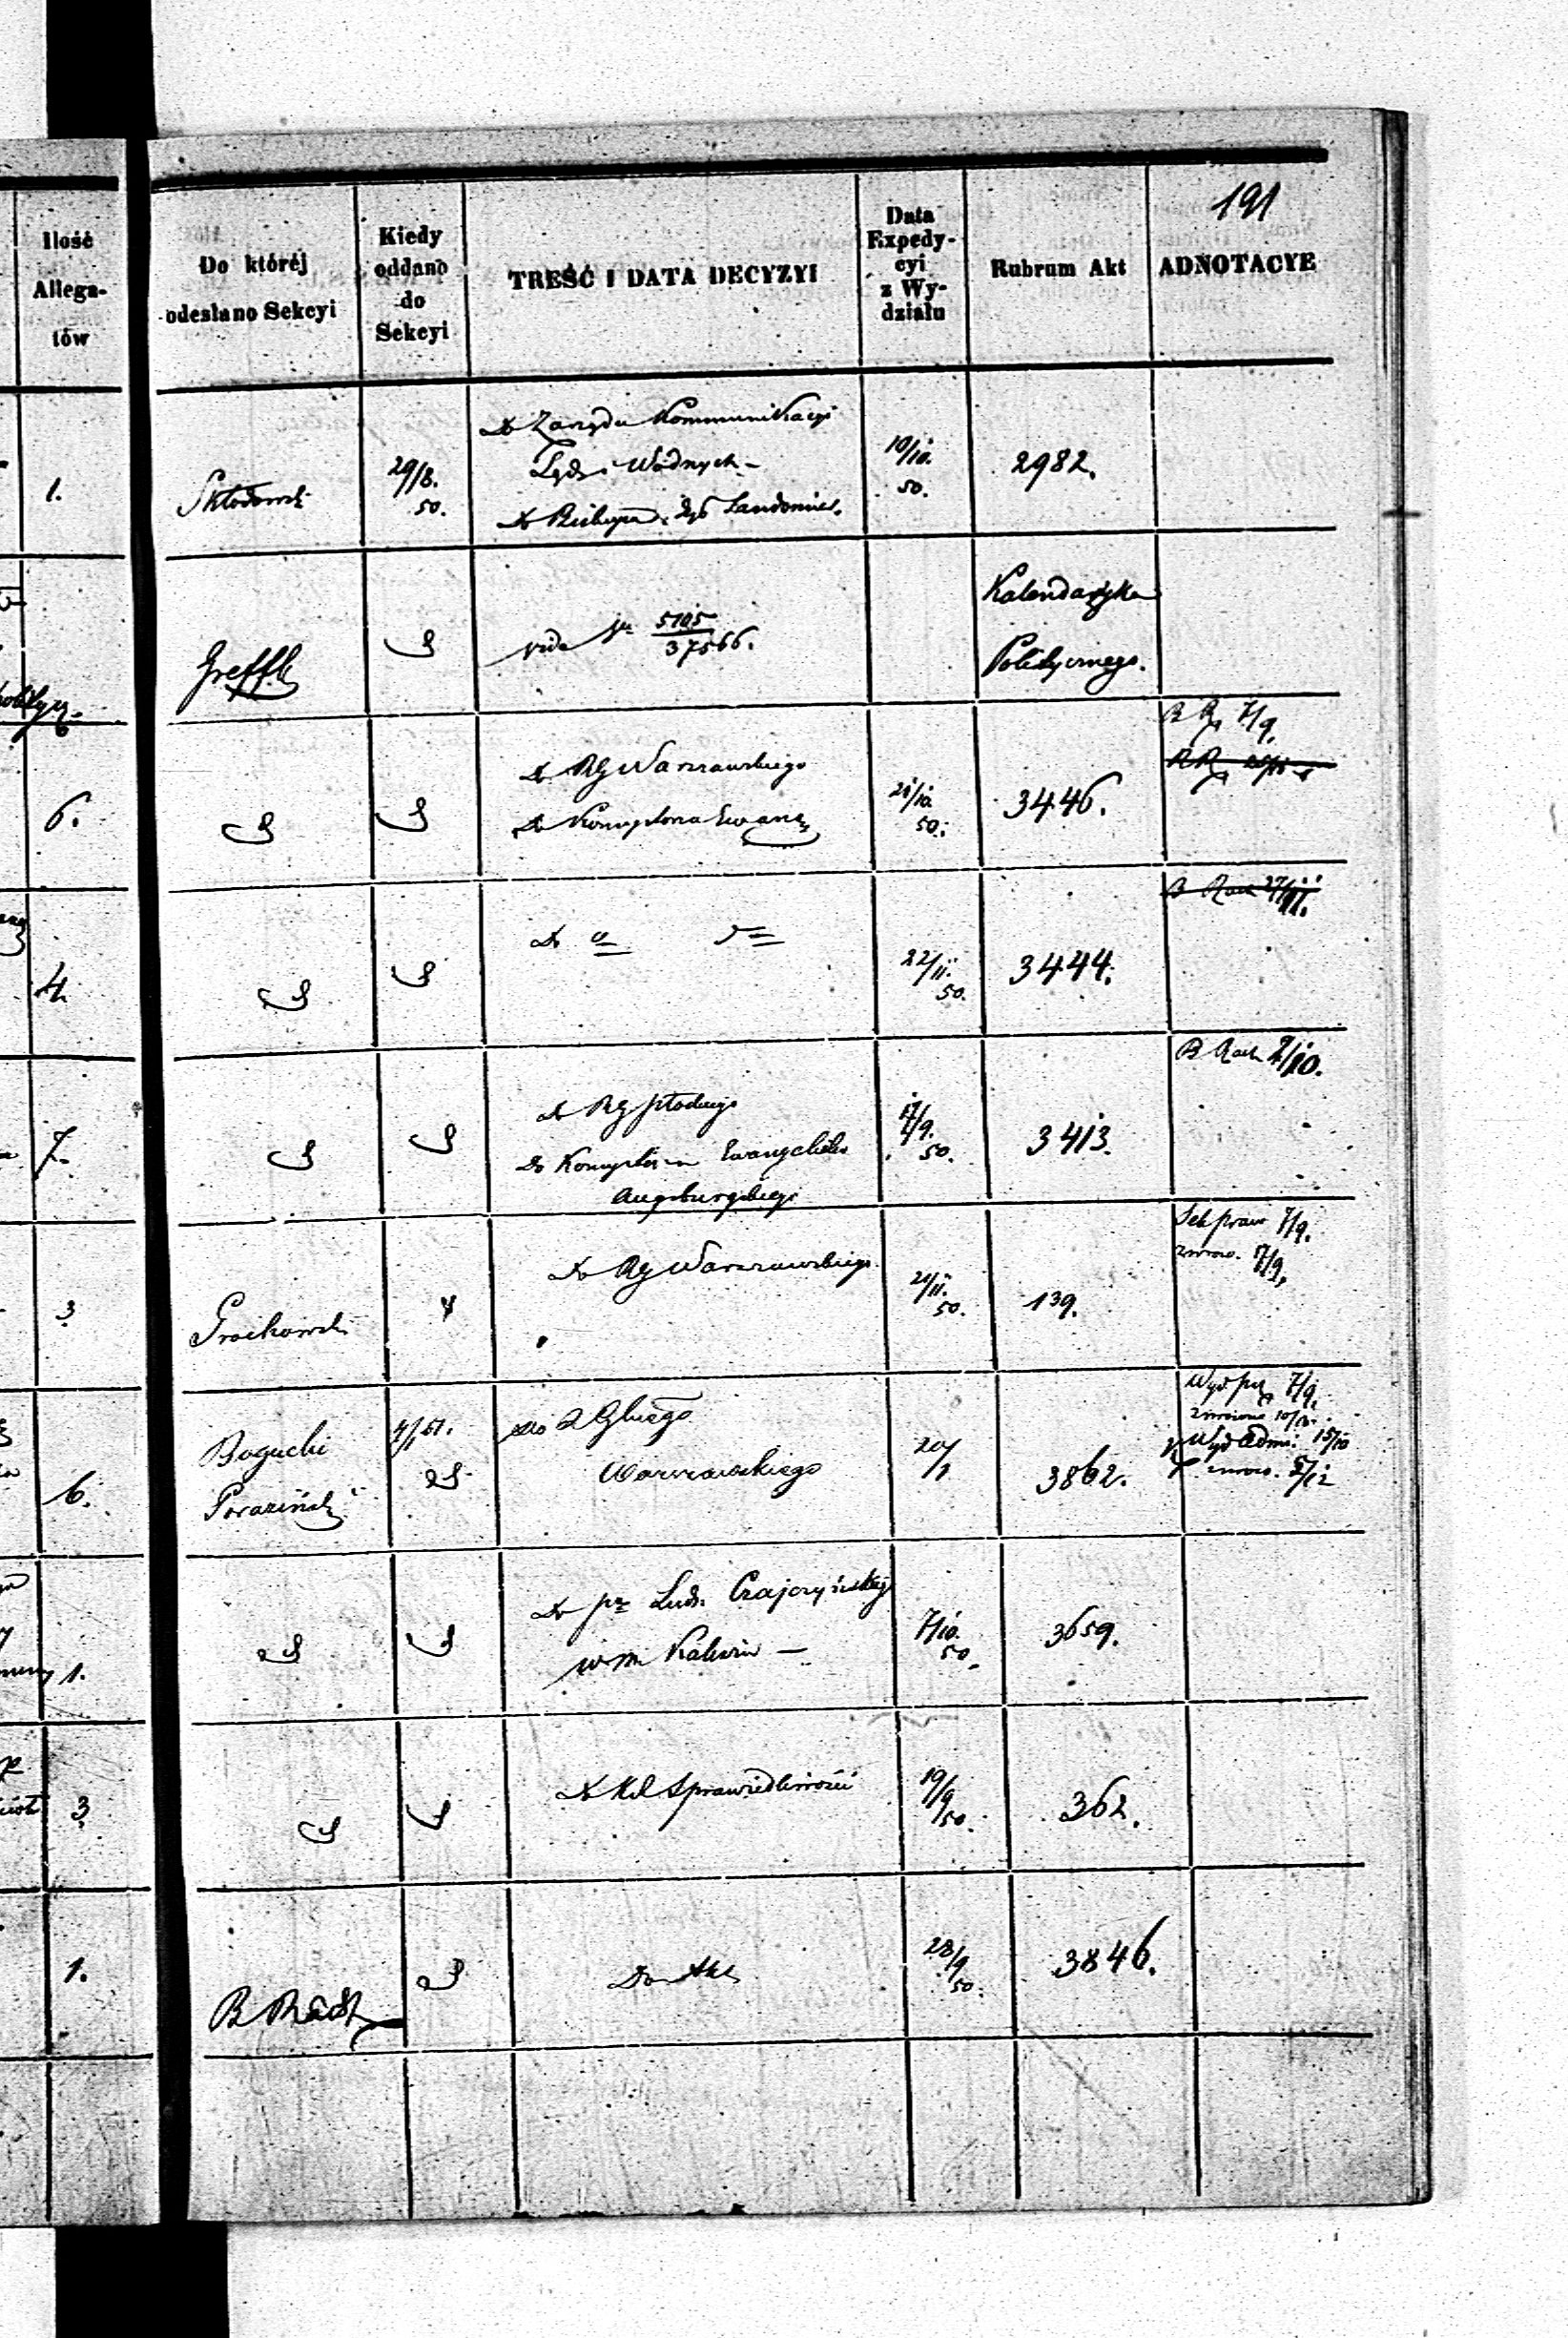 191
Ilość
Allega-
tów
Do któréj
odesłano Sekcyi
Kiedy
oddano
do
Sekcyi
TREŚĆ I DATA DECYZYI
Data
Expedy-
cyi
z Wy-
działu
Rubrum Akt
ADNOTACYE
1.
Skłodowski
29/8.
50.
Do Zarządu Kommunikacyi
Ląd. i Wodnych –
Do
10/10.
50.
2982.
Greffl
vide
5105
37566.
Kalendarzyka
Politycznego.
6.
Do RG Warszawskiego
Do Konsystorza Ewang
21/10.
50.
3446.
B R 7/9.
4.
Do
22/11.
50.
3444.
B Rach 27/11.
7.
Do RG Płockiego
Do Konsystorza Ewangelicko
Augsburgskiego
17/9.
50.
3413.
B Rach 2/10.
3
Grochowski
Do RG Warszawskiego
21/11.
50.
139.
Sek praw 7/9.
zwroc. 17/9,
6.
Bogucki
Poraziński
4/1 51.
do RGbnego
Warszawskiego
20/1
3862.
Wyd 7/9,
zwrócone 10/10.
Wyd Admi. 15/10
zwroc. 5/12
1.
Do Ludw. Czajczyńskiej
w m
7/10.
50.
3659.
3
Do Sprawiedliwości
19/9
50.
362.
1.
B Rach
Do Akt
28/9
50.
3846.